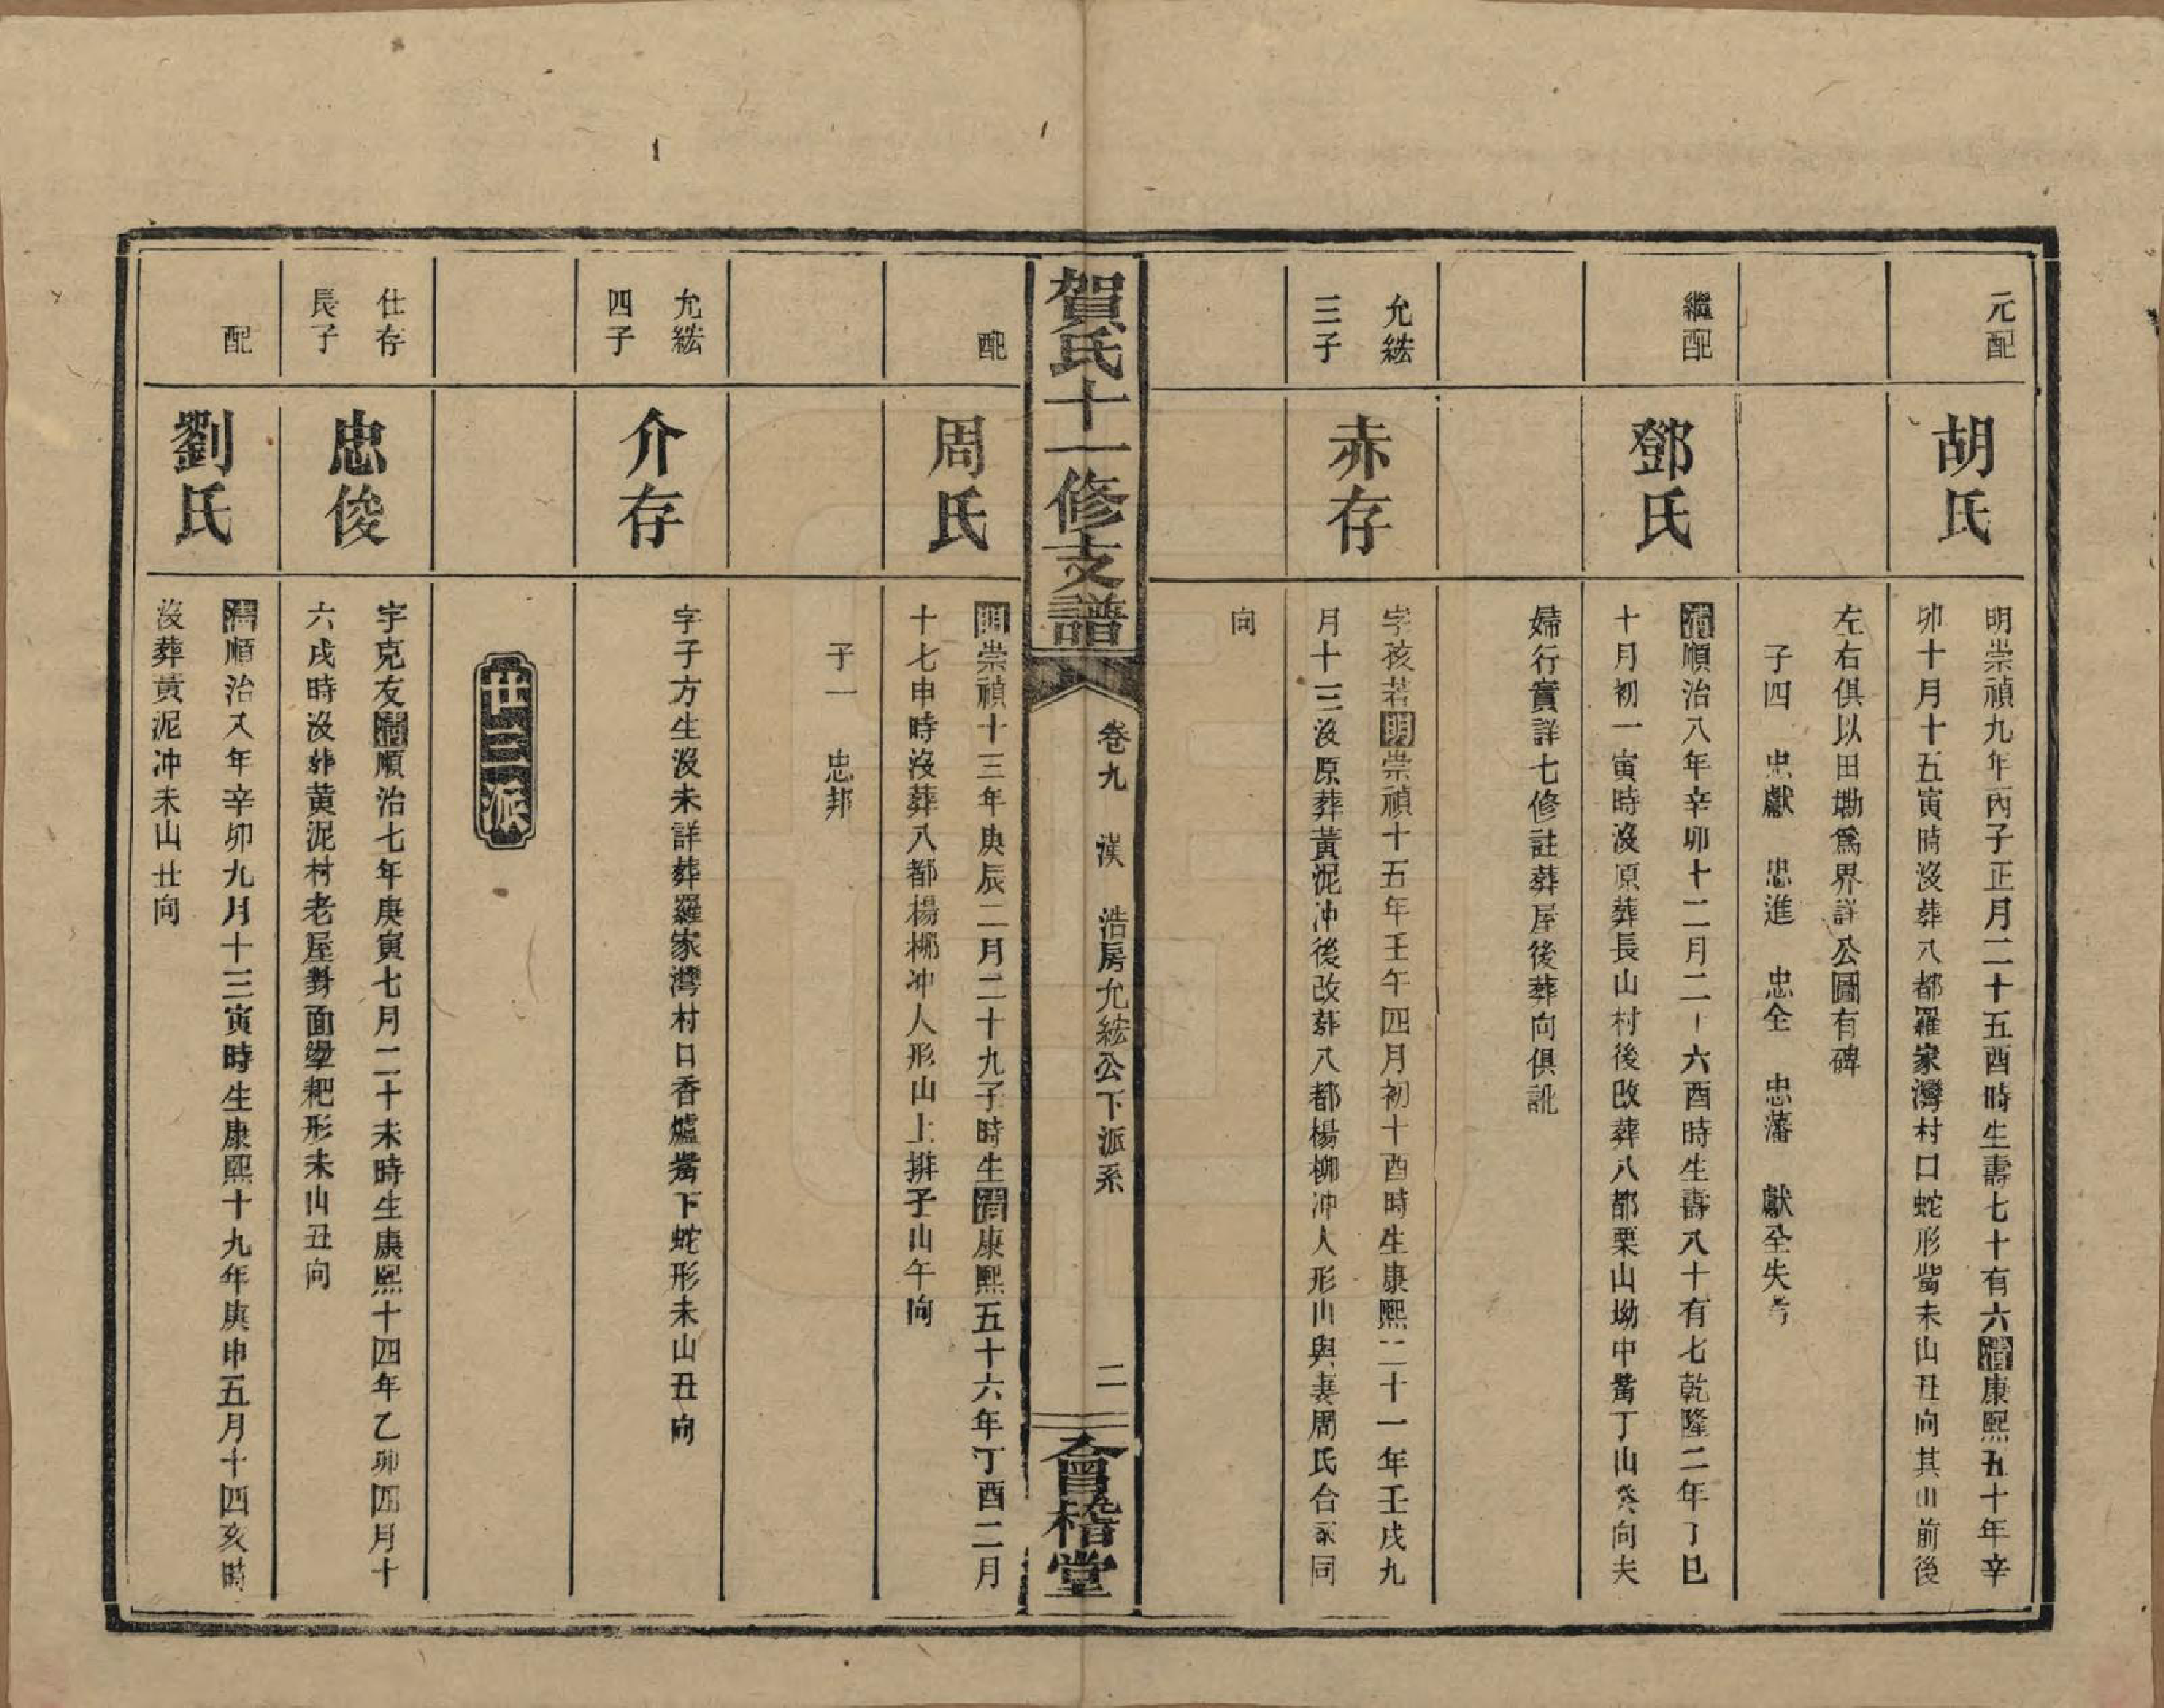 元配
胡氏
明崇禎九年丙子正月二十五酉時生壽七十有六清康熙五十年辛
卯十月十五寅時沒葬八都羅家灣村口蛇形嘴未山丑向其山前後
左右俱以田塝爲界詳公圖有碑
子四 忠獻 忠進 忠全 忠藩 獻全失考
繼配
鄧氏
清順治八年辛卯十二月二十六酉時生壽八十有七乾隆二年丁巳
十月初一寅時沒原葬長山村後改葬八都栗山坳中嘴丁山癸向夫
婦行實詳七修註葬屋後葬向俱訛
允紘
三子
赤存
字孩若明崇禎十五年壬午四月初十酉時生康熙二十一年壬戌九
月十三沒原葬黃泥冲後改葬八都楊柳冲人形山與妻周氏合冢同
向
賀氏十一修支譜
卷九 漢 浩房允紘公下派系
二
會稽堂
配
周氏
明崇禎十三年庚辰二月二十九子時生清康熙五十六年丁酉二月
十七申時沒葬八都楊柳冲人形山上排子山午向
子一 忠邦
允紘
四子
介存
字子方生沒未詳葬羅家灣村口香爐嘴下蛇形未山丑向
廿三派
仕存
長子
忠俊
字克友清順治七年庚寅七月二十未時生康熙十四年乙卯四月十
六戌時沒葬黃泥村老屋對面犂耙形未山丑向
配
劉氏
清順治八年辛卯九月十三寅時生康熙十九年庚申五月十四亥時
沒葬黃泥冲未山丑向